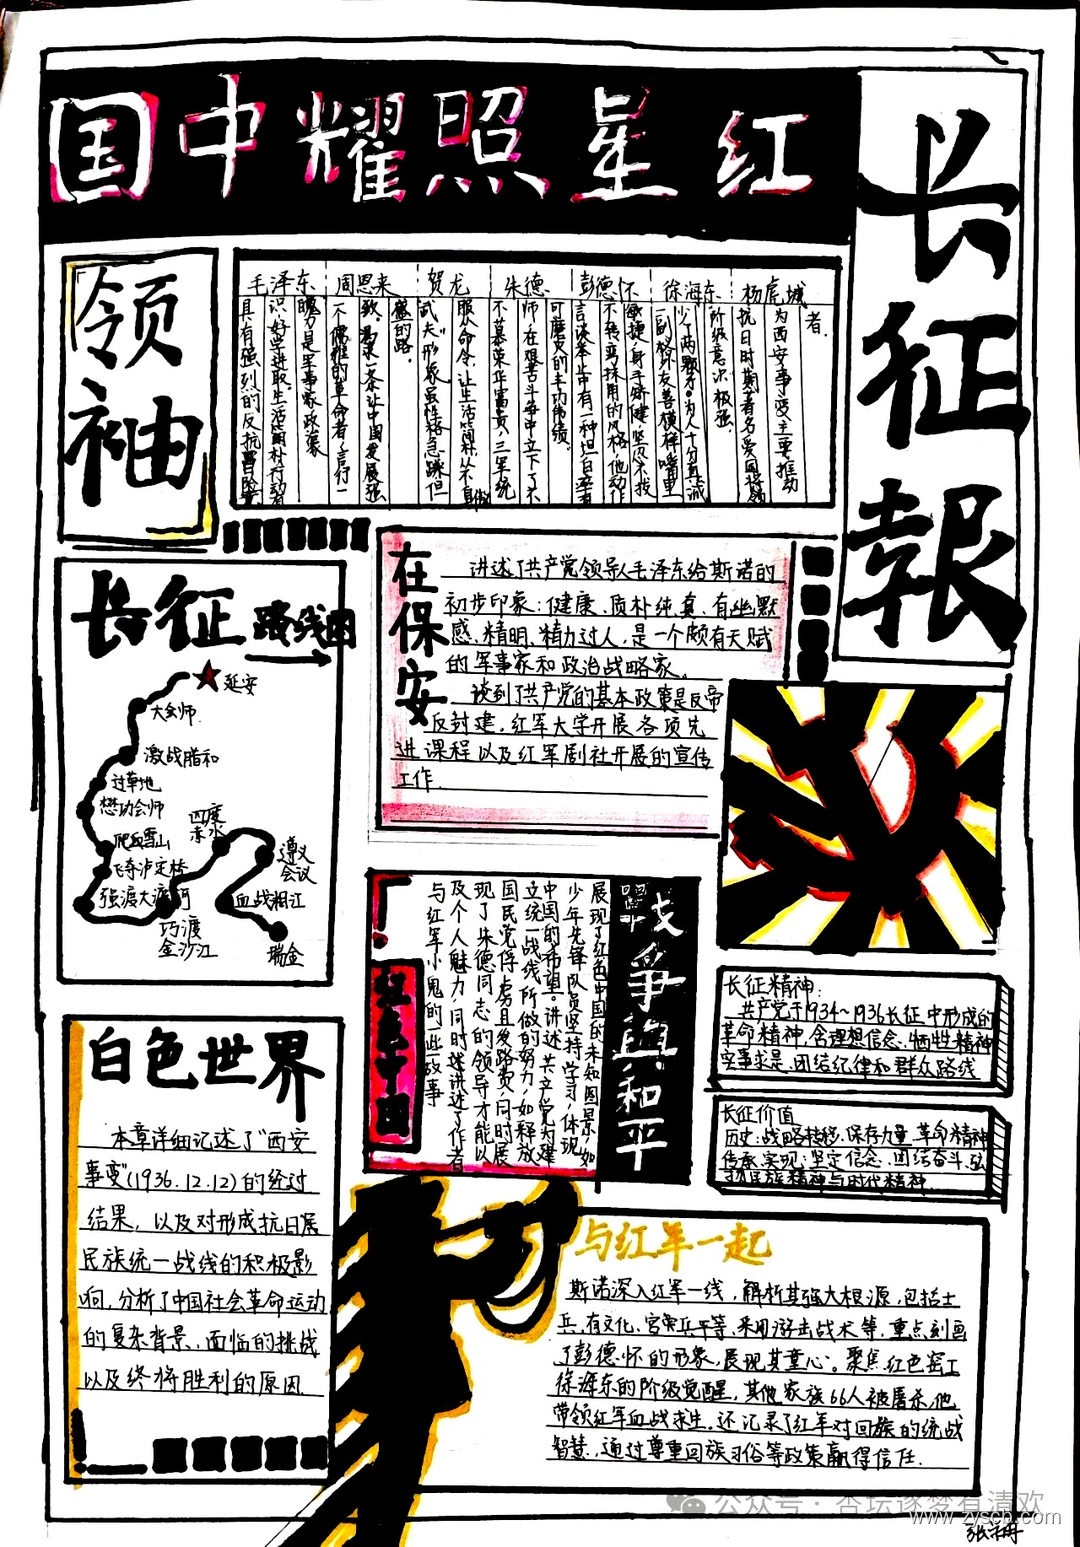 国中耀照星红
长征報
领袖
毛泽东
具有强烈的反抗
识,好学进取,生活简朴行动有
魄力是军事家政策
周恩来
一个儒雅的革命者,言行一
致,为求一条让中国发展强
盛的路。
贺龙
武夫"形象虽性格急躁但
服从命令,让生活简朴,从不
朱德
不慕荣华富贵,三军统
师,在艰苦斗争中立下了不
可磨灭的丰功伟绩。
彭德怀
言谈举止中有一种坦白率真
不转弯抹角的风格,他动作
敏捷,身手矫健,坚忍不拔
徐海东
少了两颗牙。为人十分真诚
阶级意识极强
杨虎城
抗日时期著名爱国将领
为西安事变主要推动
者。
长征路线图
延安
大会师
激战腊和
过草地
懋功会师
爬雪山
飞夺泸定桥
强渡大渡河
巧渡
金沙江
四度
赤水
遵义
会议
血战湘江
瑞金
在保安
讲述了共产党领导人毛泽东给斯诺的
初步印象:健康、质朴纯真、有幽默
感、精明、精力过人,是一个颇有天赋
的军事家和政治战略家。
谈到了共产党的基本政策是反帝
反封建,红军大学开展各项先
进课程以及红军剧社开展的宣传
工作.
戰爭與和平
展现了红色中国的未知图景,如
少年先锋队员坚持学习,体现
中国的希望。讲述共产党为建
立统一战线所做的努力,如释放
国民党俘虏且发路费,同时展
现了朱德同志的领导才能以
及个人魅力,同时还讲述了作者
与红军小鬼的一些故事
红色中国
长征精神:
共产党于1934~1936长征中形成的
革命精神,含理想信念、牺牲精神
实事求是、团结纪律和群众路线
长征价值
历史:战略转移、保存力量、革命精神
传承,实现:坚定信念、团结奋斗,弘
扬民族精神与时代精神.
白色世界
本章详细记述了"西安
事变"(1936.12.12)的经过
结果,以及对形成抗日民
民族统一战线的积极影
响,分析了中国社会革命运动
的复杂背景、面临的挑战
以及终将胜利的原因
与红军一起
斯诺深入红军一线,解析其强大根源,包括士
兵有文化、官兵平等、采用游击战术等,重点刻画
了彭德怀的形象,展现其童心。聚焦红色窑工
徐海东的阶级觉醒,其他家族66人被屠杀,他
带领红军血战求生。还记录了红军对回族的统战
智慧,通过尊重回族习俗等政策赢得信任.
公众号·杏坛逐梦有清欢
www.zyscb.com